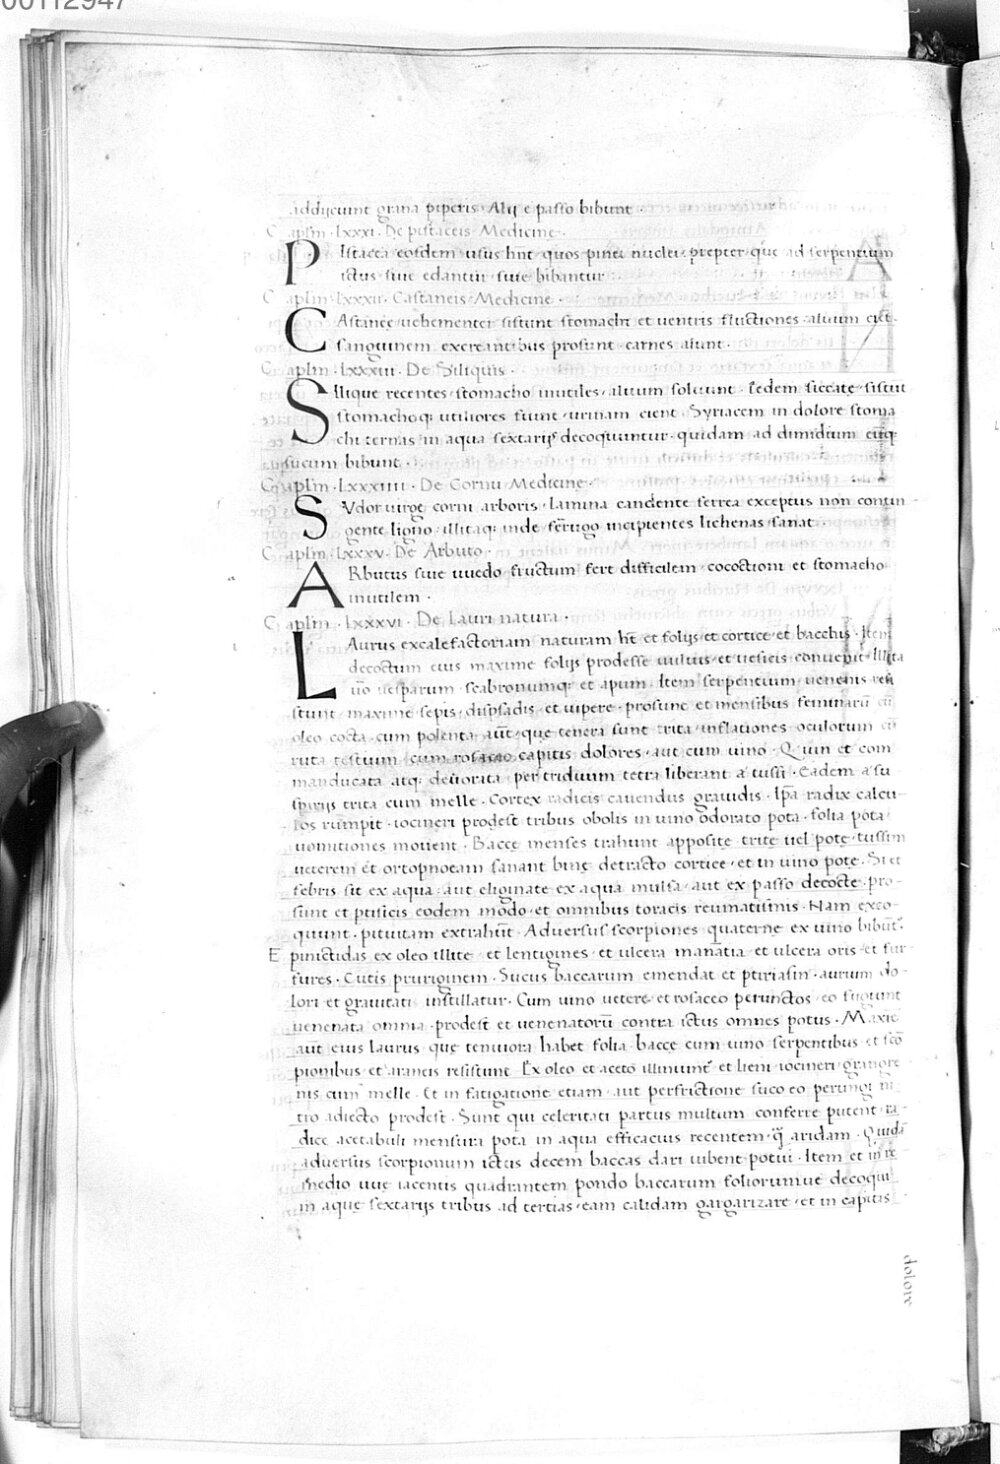 00112947
addijciunt grana piperis · Alij e passo bibunt ·
Caplm · lxxxi · De pistaceis · Medicine ·
PIstacea eosdem usus hñt · quos pinei nuclei · prepter · que ad serpentium
ictus · siue edantur · siue bibantur
Caplm · lxxxii · Castaneis · Medicine ·
CAstanee uehementer sistunt stomachi et uentris fluctiones · aluum ciet ·
sanguinem excreantibus prosunt · carnes alunt ·
Caplm · lxxxiii · De Siliquis ·
Silique recentes · stomacho inutiles · aluum soluunt · sedem siccate · sistūt
stomachoq; utiliores fiunt · urinam cient · Syriacem in dolore stoma
chi ternas in aqua sextarijs decoquuntur · quidam ad dimidium eiusq;
sucum bibunt ·
Caplm · Lxxxiiii · De Cornu · Medicine ·
SVdor uirge corni arboris · lamina candente ferrea exceptus non contin
gente ligno · illitaq; inde ferrugo incipientes lichenas sanat ·
Caplm · Lxxxv · De Arbuto ·
ARbutus siue uuedo fructum fert difficilem · cococtioni et stomacho
inutilem ·
Caplm · lxxxvi · De Lauri natura ·
LAurus excalefactoriam naturam hēt et folijs et cortice et bacchis · Item
decoctum eius maxime folijs prodesse uuluis et uesicis conuenit · Illita
uō uesparum · scabronumq; et apum · Item serpentium · uenenis resi
stunt · maxime sepis · dispsadis · et uipere · prosunt et mensibus feminarū cū
oleo cocta · cum polenta · aūt · que tenera sunt trita · inflationes · oculorum cū
ruta testium · cum rosaceo capitis dolores · aut cum uino · Quin et com
manducata atq; deuorata · per triduum tetra liberant a tussi · Eadem a su
spirijs trita cum melle · Cortex radicis cauendus grauidis · Ipa radix calcu
los rumpit · iocineri prodest tribus obolis in uino odorato pota · folia pota
uomitiones mouent · Baccę menses trahunt apposite · trite uel potę · tussim
ueterem et ortopnoeam sanant binę detracto cortice · et in uino pote · Si et
febris sit ex aqua · aut eliginate ex aqua mulsa · aut ex passo decocte · pro
sunt et ptisicis eodem modo · et omnibus toracis reumatismis · Nam exco
quunt · pituitam extrahūt · Aduersus scorpiones quaternę ex uino bibūt ·
Epinictidas ex oleo illite · et lentigines · et ulcera manātia · et ulcera oris · et fur
fures · Cutis pruriginem · Sucus baccarum emendat et ptiriasin · aurium do
lori et grauitati instillatur · Cum uino uetere et rosaceo perunctos · eo fugiunt
uenenata omnia · prodest et uenenatorū contra ictus omnes potus · Maxie
aūt eius laurus quę tenuiora habet folia · baccę cum uino serpentibus · et sco
pionibus et araneis resistunt · Ex oleo et aceto illinunt · et lieni · iocineri · gangre
nis cum melle · Et in fatigatione etiam · aut perfrictione suco eo perungi ni
tro adiecto prodest · Sunt qui celeritati partus multum conferre putent · ra
dicē acetabuli mensura pota in aqua efficacius recentem · q̄ aridam · Quidā
aduersus scorpionum ictus decem baccas dari iubent · potui · Item et in re
medio uue iacentis quadrantem pondo baccarum foliorumue decoqui
in aque sextarijs tribus ad tertias · eam calidam gargarizare · et in capitis
dolore